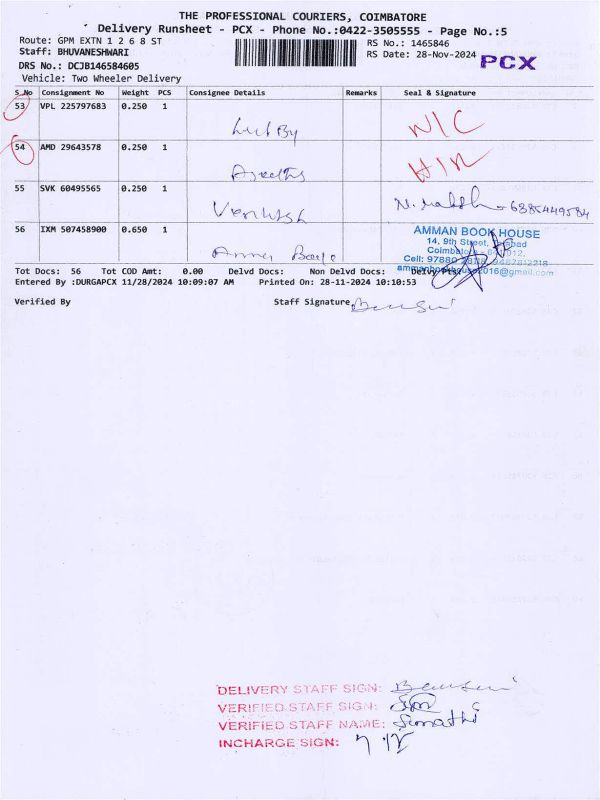 THE PROFESSIONAL COURIERS, COIMBATORE
Delivery Runsheet - PCX - Phone No.:0422-3505555 - Page No.:5
Route: GPM EXTN 1 2 6 8 ST
RS No.: 1465846
Staff: BHUVANESHWARI
RS Date: 28-Nov-2024
PCX
DRS No.: DCJB146584605
Vehicle: Two Wheeler Delivery
S.No Consignment No Weight PCS Consignee Details Remarks Seal & Signature
53 VPL 225797683 0.250 1 N/C
54 AMD 29643578 0.250 1
55 SVK 60495565 0.250 1
56 IXM 507458900 0.650 1
AMMAN BOOK HOUSE
14, 9th Street,
Tot Docs: 56 Tot COD Amt: 0.00 Delvd Docs: Non Delvd Docs:
Entered By :DURGAPCX 11/28/2024 10:09:07 AM Printed On: 28-11-2024 10:10:53
Verified By Staff Signature
DELIVERY STAFF SIGN:
VERIFIED STAFF SIGN:
VERIFIED STAFF NAME: Sumathi
INCHARGE SIGN: